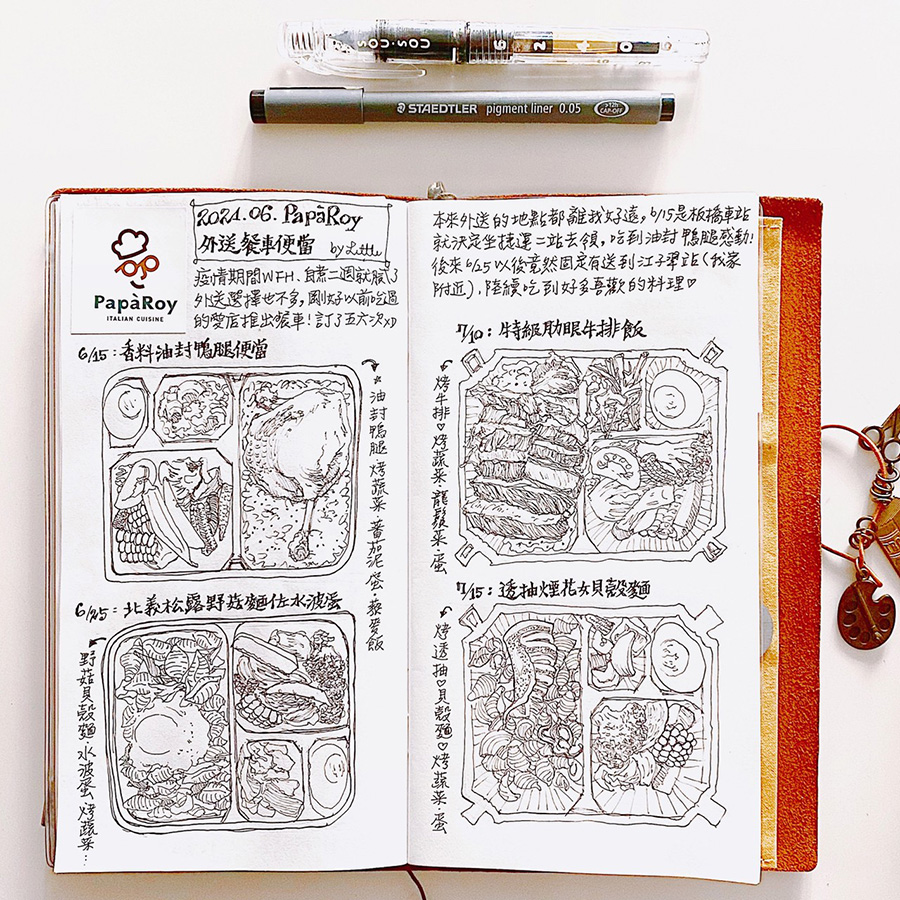 SOU·SOU
6 2 4 0
STAEDTLER pigment liner 0.05
>12h
CAP-OFF
PapàRoy
ITALIAN CUISINE
2021.06. PapàRoy
外送餐車便當 by Little
疫情期間WFH、自煮二週就膩了
外送選擇也不多，剛好以前吃過
的愛店推出餐車！訂了五六次XD
6/15：香料油封鴨腿便當
油封鴨腿 烤蔬菜 蕃茄泥 蛋·藜麥飯
6/25：北義松露野菇麵佐水波蛋
野菇貝殼麵 水波蛋 烤蔬菜…
本來外送的地點都離我好遠，6/15是板橋車站
就決定坐捷運二站去領，吃到油封鴨腿感動！
後來6/25以後竟然固定有送到江子翠站（我家
附近），陸續吃到好多喜歡的料理♡
7/10：特級肋眼牛排飯
烤牛排♡烤蔬菜·龍鬚菜·蛋
7/15：透抽煙花女貝殼麵
烤透抽♡貝殼麵♡烤蔬菜·蛋